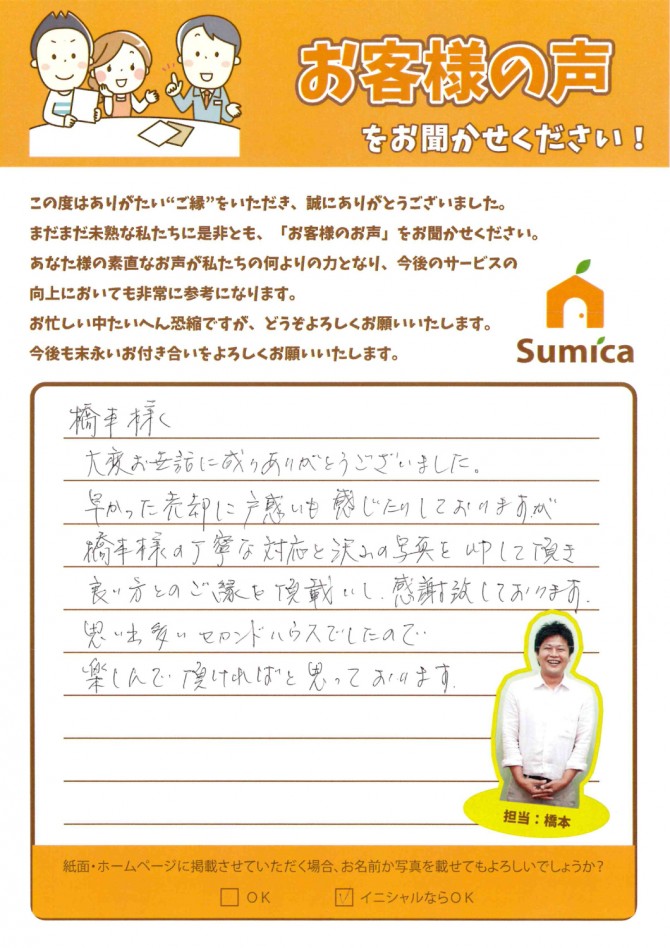 お客様の声
をお聞かせください！
この度はありがたい“ご縁”をいただき、誠にありがとうございました。
まだまだ未熟な私たちに是非とも、「お客様のお声」をお聞かせください。
あなた様の素直なお声が私たちの何よりの力となり、今後のサービスの
向上においても非常に参考になります。
お忙しい中たいへん恐縮ですが、どうぞよろしくお願いいたします。
今後も末永いお付き合いをよろしくお願いいたします。
Sumica
橋本様へ
大変お世話に成りありがとうございました。
早かった売却に戸惑いも感じたりしておりますが
橋本様の丁寧な対応と沢山の写真を写して頂き
良い方とのご縁を頂載いし、感謝致しております。
思い出多いセカンドハウスでしたので
楽しんで頂ければと思っております。
担当：橋本
紙面・ホームページに掲載させていただく場合、お名前か写真を載せてもよろしいでしょうか？
OK
イニシャルならOK